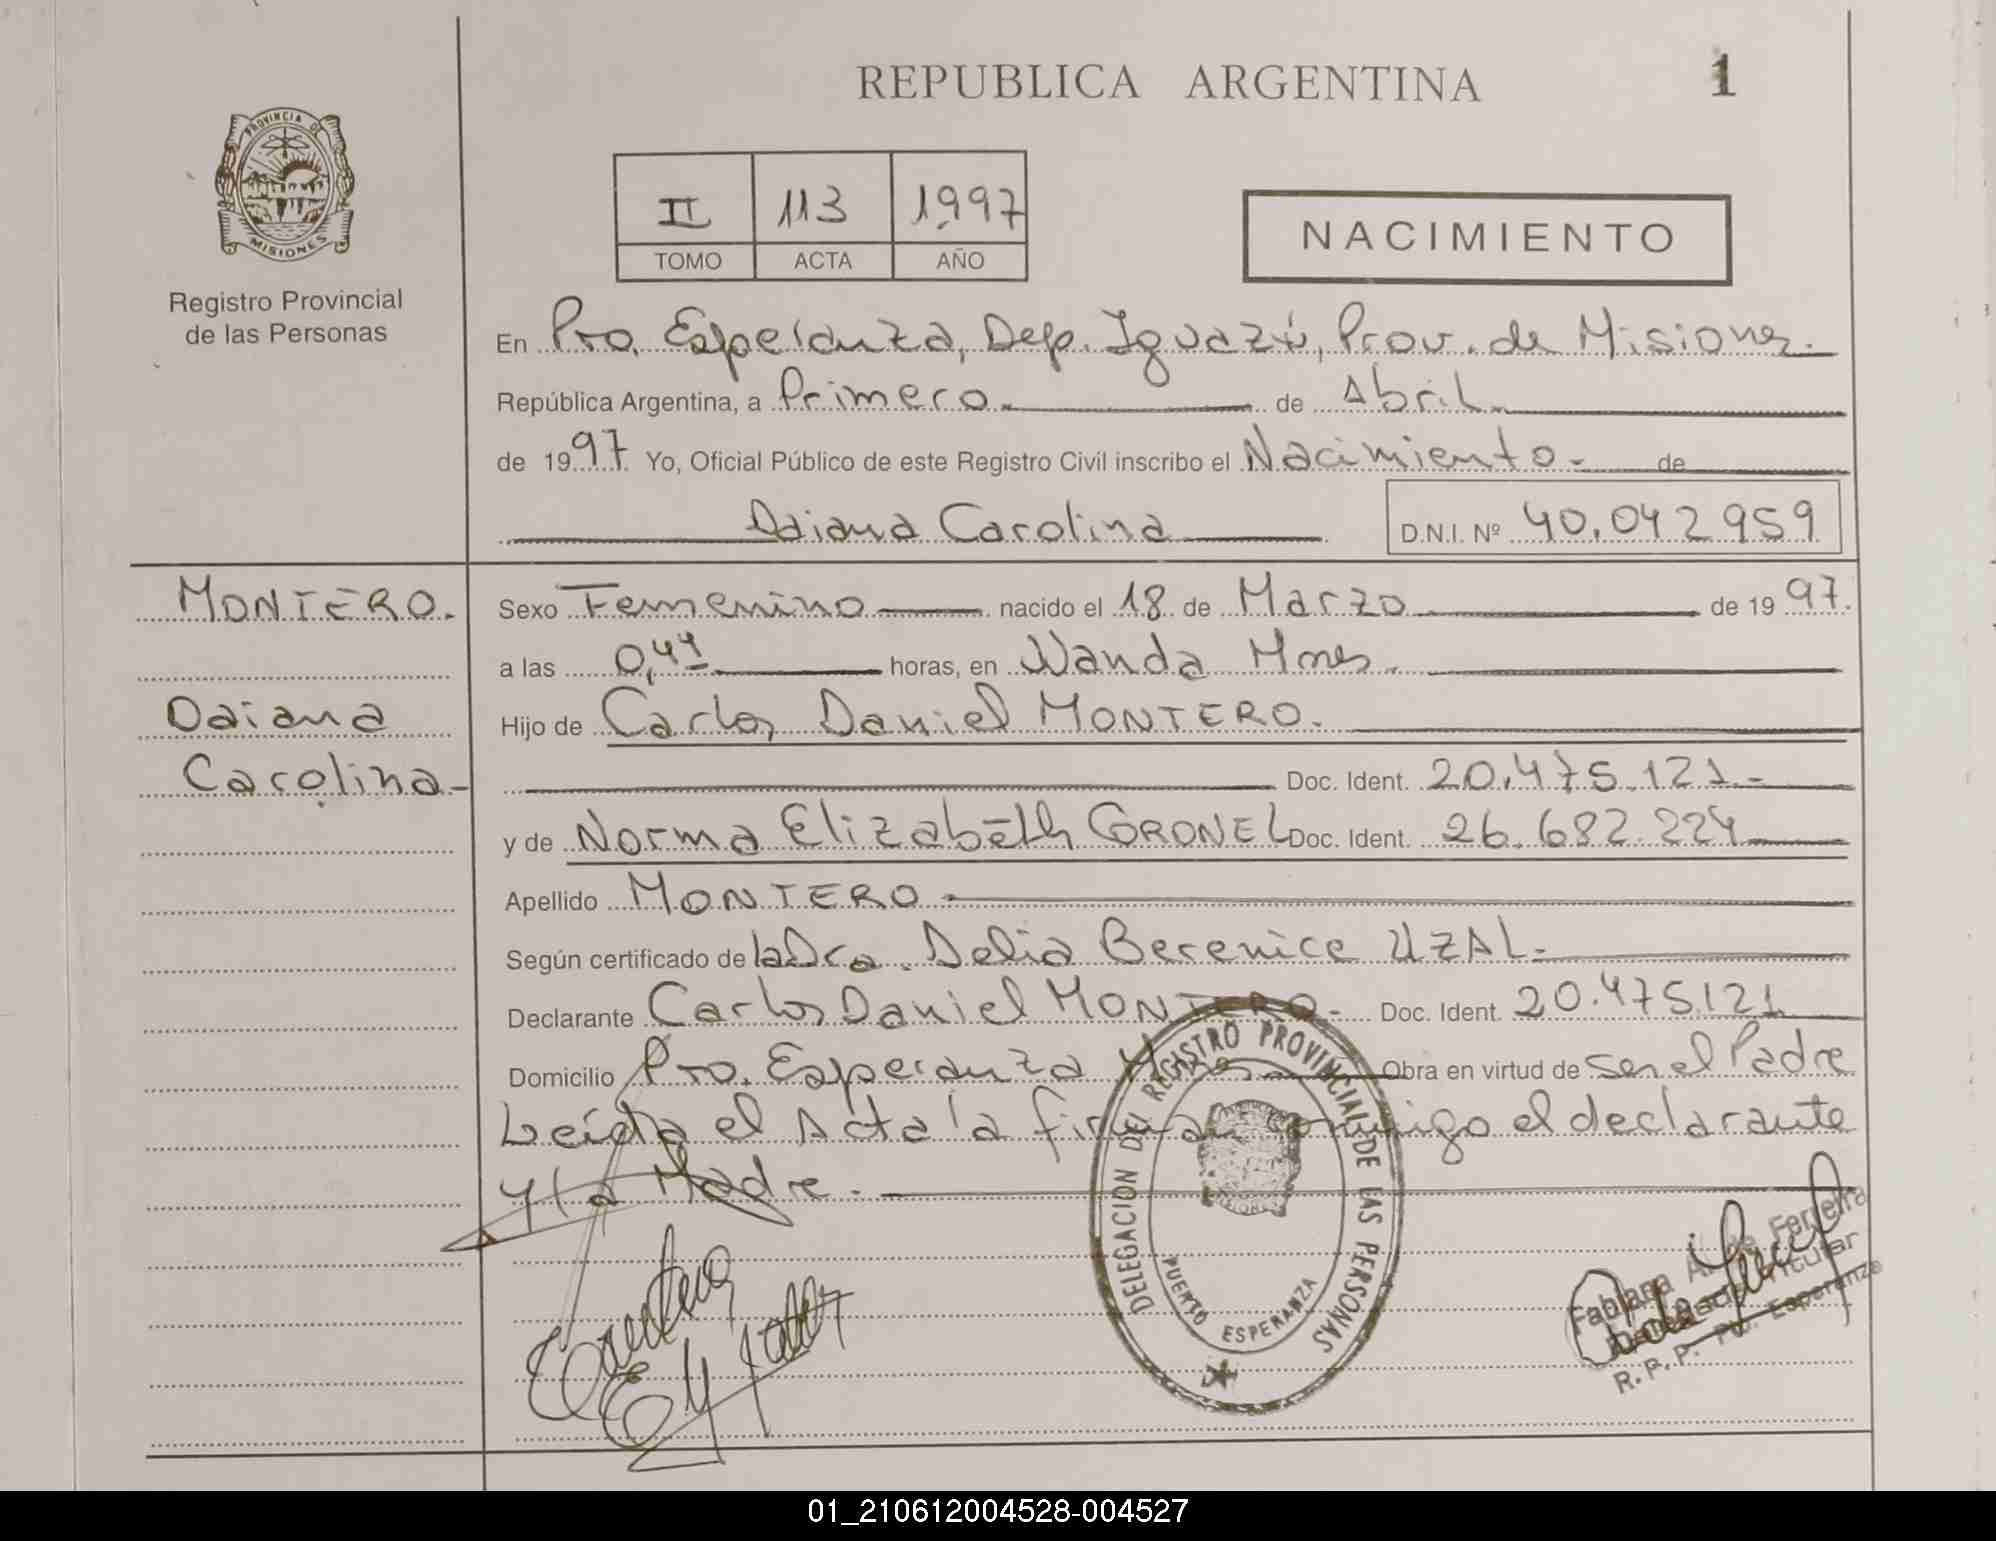 REPUBLICA ARGENTINA
1
PROVINCIA DE
MISIONES
Registro Provincial
de las Personas
II 113 1997
TOMO ACTA AÑO
NACIMIENTO
En Pto. Esperanza, Dep. Iguazú, Prov. de Misiones.
República Argentina, a Primero de Abril
de 1997 Yo, Oficial Público de este Registro Civil inscribo el Nacimiento de
Daiana Carolina D.N.I. Nº 40.042959
MONTERO.
Daiana
Carolina
Sexo Femenino nacido el 18 de Marzo de 1997.
a las 0,44 horas, en Wanda Mnes.
Hijo de Carlos Daniel MONTERO.
Doc. Ident. 20.475.121
y de Norma Elizabeth CORONEL Doc. Ident. 26.682.224
Apellido MONTERO
Según certificado de la Dra. Delia Berenice UZAL
Declarante Carlos Daniel MONTERO. Doc. Ident. 20.475121
Domicilio Pto. Esperanza Mnes Obra en virtud de ser el Padre
Leída el Acta la firman conmigo el declarante
y la Madre.
DELEGACION DEL REGISTRO PROVINCIAL DE LAS PERSONAS
PUERTO ESPERANZA
Fabiana de Ferreira
Titular
R.P.P. Pto. Esperanza
01_210612004528-004527